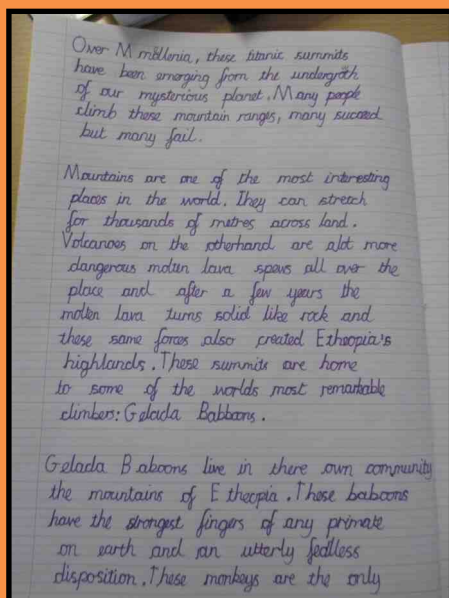 Over M mollenia, these titanic summits
have been emerging from the undergroth
of our mysterious planet. Many people
climb these mountain ranges, many succeed
but many fail.
Mountains are one of the most interesting
places in the world. They can stretch
for thousands of metres across land.
Volcanoes on the otherhand are alot more
dangerous molten lava spews all over the
place and after a few years the
molten lava turns solid like rock and
these same forces also created Etheopia's
highlands. These summits are home
to some of the worlds most remarkable
climbers: Gelada Babbons.
Gelada Baboons live in there own community
the mountains of Etheopia. These baboons
have the strongest fingers of any primate
on earth and an utterly
disposition. These monkeys are the only